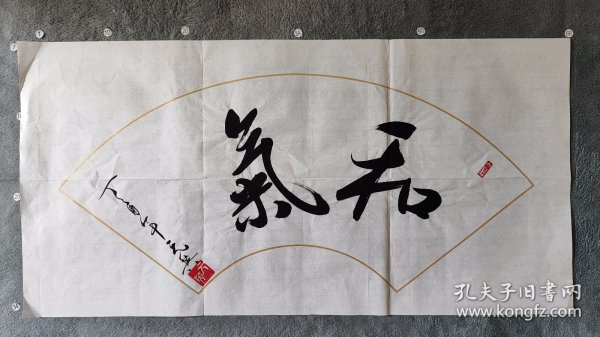 和氣
丁酉年
孔夫子旧书网
www.kongfz.com